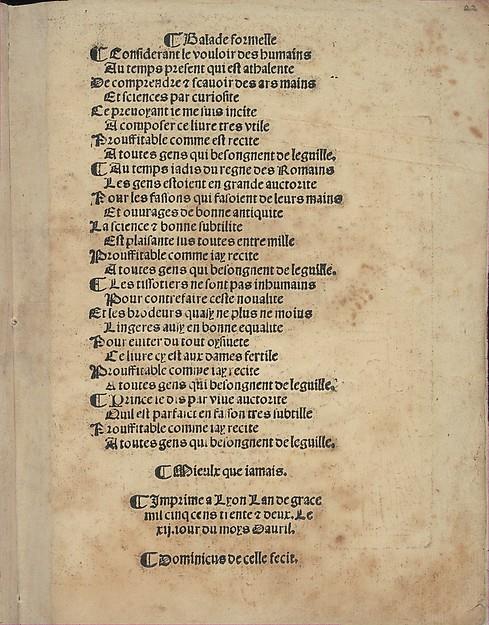 22
¶ Balade formelle
¶ Considerant le vouloir des humains
Au temps present qui est athalente
De comprendre ⁊ scauoir des ars mains
Et sciences par curiosite
Ce preuoyant ie me suis incite
A composer ce liure tres vtile
Prouffitable comme est recite
A toutes gens qui besongnent de leguille.
¶ Au temps iadis du regne des Romains
Les gens estoient en grande auctorite
Pour les fasions qui fasoient de leurs mains
Et ouurages de bonne antiquite
La science ⁊ bonne subtilite
Est plaisante sus toutes entre mille
Prouffitable comme iay recite
A toutes gens qui besongnent de leguille.
¶ Les tissotiers ne sont pas inhumains
Pour contrefaire ceste noualite
Et les brodeurs quasy ne plus ne moins
Lingeres ausy en bonne equalite
Pour euiter du tout oysiuete
Ce liure cy est aux dames fertile
Prouffitable comme iay recite
A toutes gens qui besongnent de leguille.
¶ Prince ie dis par viue auctorite
Quil est parfaict en fasson tres subtille
Prouffitable comme iay recite
A toutes gens qui besongnent de leguille.
¶ Mieulx que iamais.
¶ Imprime a Lyon Lan de grace
mil cinq cens trente ⁊ deux. Le
xij. iour du moys Dauril.
¶ Dominicus de celle fecit.